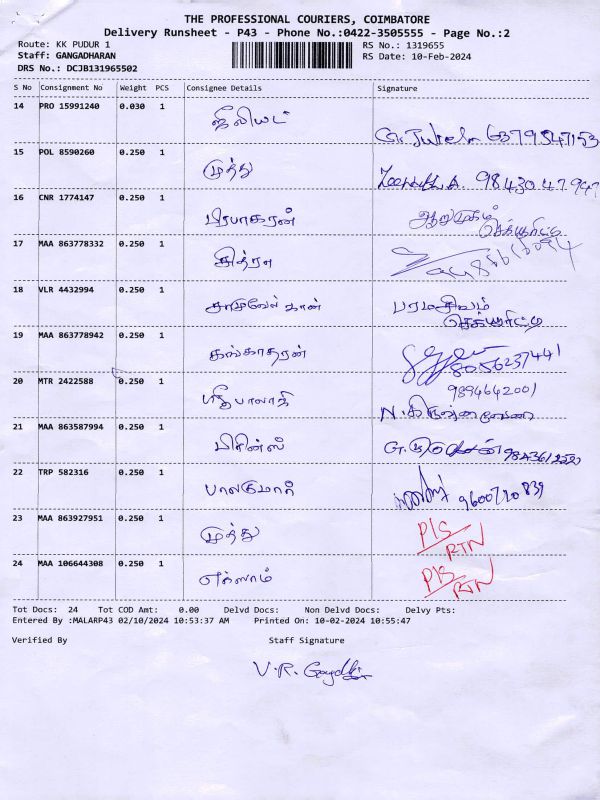 THE PROFESSIONAL COURIERS, COIMBATORE
Delivery Runsheet - P43 - Phone No.:0422-3505555 - Page No.:2
Route: KK PUDUR 1
RS No.: 1319655
Staff: GANGADHARAN
RS Date: 10-Feb-2024
DRS No.: DCJB131965502
S No Consignment No Weight PCS Consignee Details Signature
14 PRO 15991240 0.030 1
15 POL 8590260 0.250 1 முத்து
16 CNR 1774147 0.250 1 பிரபாகரன் ஆறுமுகம்
செக்யூரிட்டி
17 MAA 863778332 0.250 1 சித்ரா
18 VLR 4432994 0.250 1 சாமுவேல் கான் பரமசிவம்
செக்யூரிட்டி
19 MAA 863778942 0.250 1 கங்காதரன் 8056237441
20 MTR 2422588 0.250 1 ஸ்ரீபாலாஜி 9894642001
21 MAA 863587994 0.250 1 பிரின்ஸ்
22 TRP 582316 0.250 1 பாலகுமார் 9600720839
23 MAA 863927951 0.250 1 முத்து P/S
RTN
24 MAA 106644308 0.250 1 P/S
RTN
Tot Docs: 24 Tot COD Amt: 0.00 Delvd Docs: Non Delvd Docs: Delvy Pts:
Entered By :MALARP43 02/10/2024 10:53:37 AM Printed On: 10-02-2024 10:55:47
Verified By Staff Signature